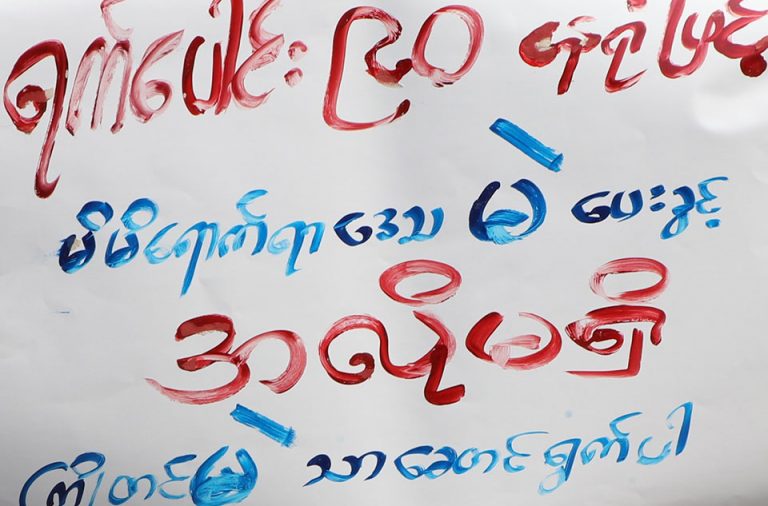 ရက်ပေါင်း ၉၀ နေ့ဖြင့်
မိမိရောက်ရာဒေသ မဲ ပေးခွင့်
အလိုမရှိ
ကြိုတင်မဲ သာ ခေတင်ရွက်ပါ